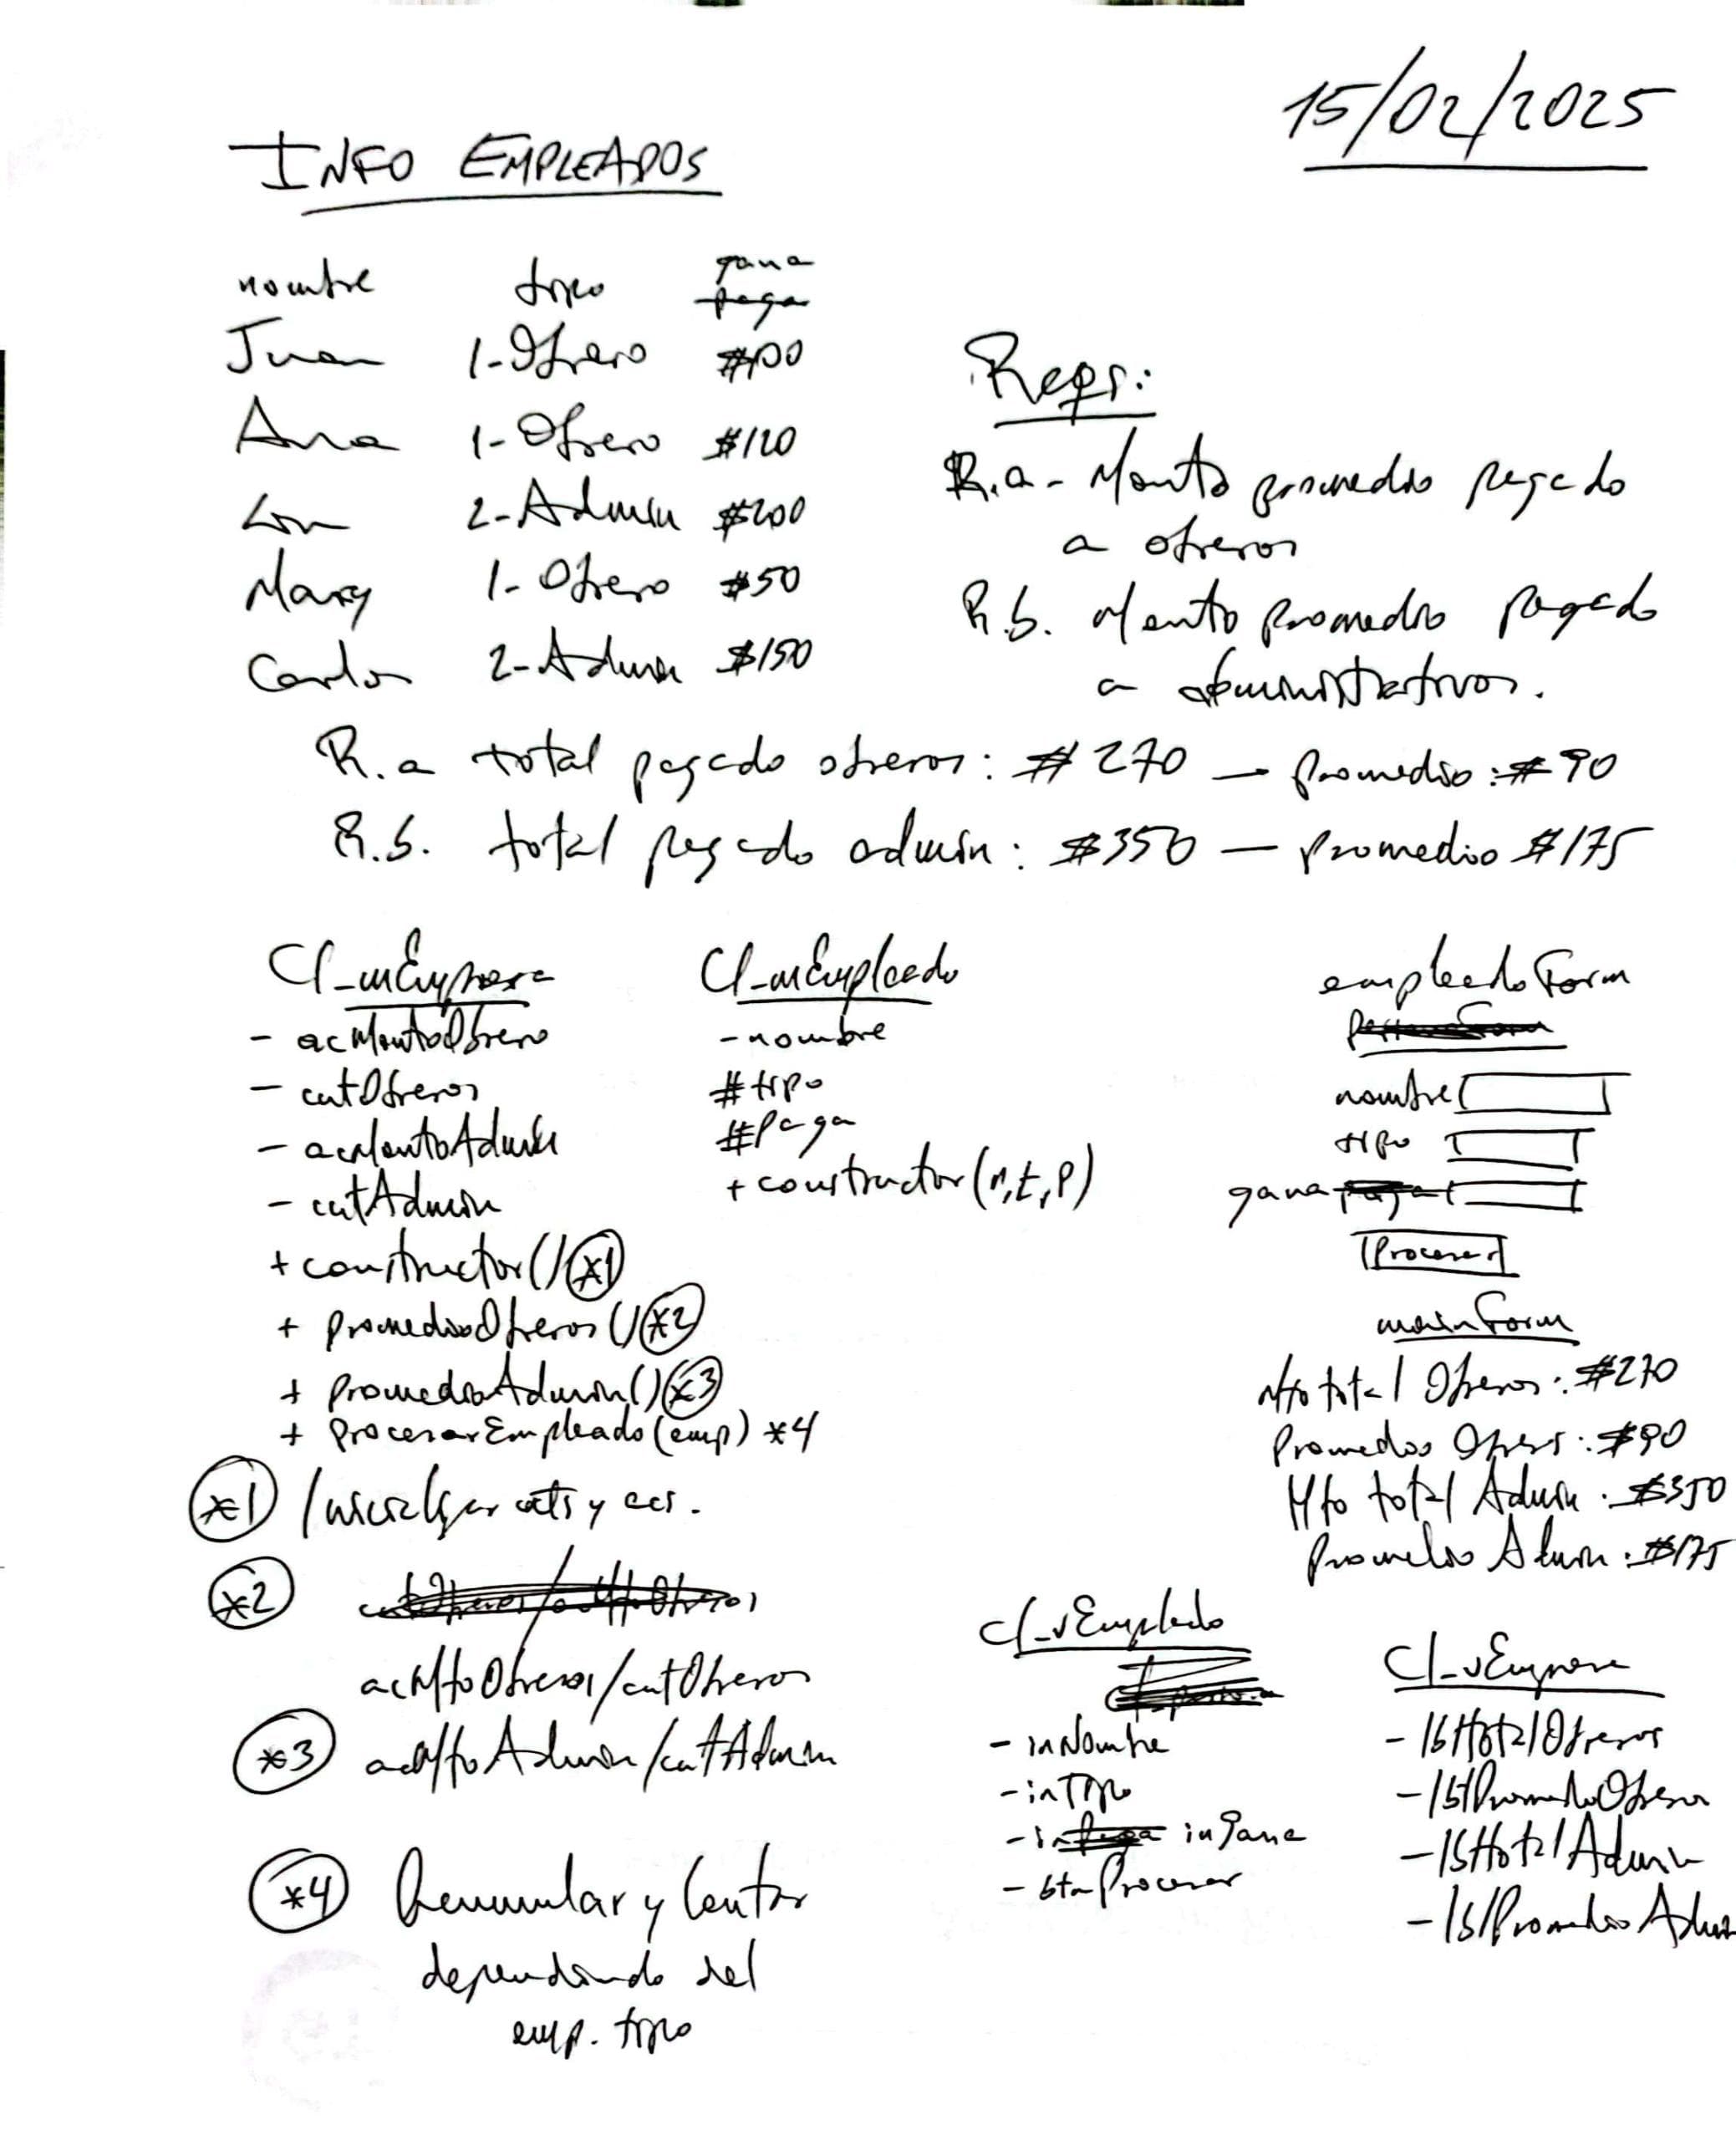 15/02/2025
INFO EMPLEADOS
nombre tipo gana
paga
Juan 1-Obrero $100
Ana 1-Obrero $120
Luis 2-Admin $200
Mary 1-Obrero $50
Carlos 2-Admin $150
Reqs:
R.a - Monto promedio pagado
a obreros
R.b. Monto promedio pagado
a administrativos.
R.a total pagado obreros: $270 — promedio: $90
R.b. total pagado admin: $350 — promedio $175
Cl_mEmpresa
- acMontoObrero
- cntObreros
- acMontoAdmin
- cntAdmin
+ constructor() *1
+ promedioObreros() *2
+ promedioAdmin() *3
+ procesarEmpleado(emp) *4
*1 Inicializar cnts y acs.
*2
acMtoObreros/cntObreros
*3 acMtoAdmin/cntAdmin
*4 Acumular y Contar
dependiendo del
emp. tipo
Cl_mEmpleado
- nombre
# tipo
# paga
+ constructor(n,t,p)
empleadoForm
nombre
tipo
gana
Procesar
mainForm
Mto total Obreros: $270
Promedio Obrers: $90
Mto total Admin: $350
Promedio Admin: $175
Cl_vEmpleado
- inNombre
- inTipo
- inGana
- btnProcesar
Cl_vEmpresa
- lbltotalObreros
- lblPromedioObrero
- lbltotalAdmin
- lblPromedioAdmin